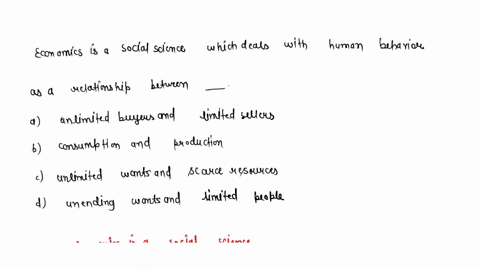 Economics is a social science which deals with human behavior
as a relationship between ___.
a) unlimited buyers and limited sellers
b) consumption and production
c) unlimited wants and scarce resources
d) unending wants and limited people
is a social science